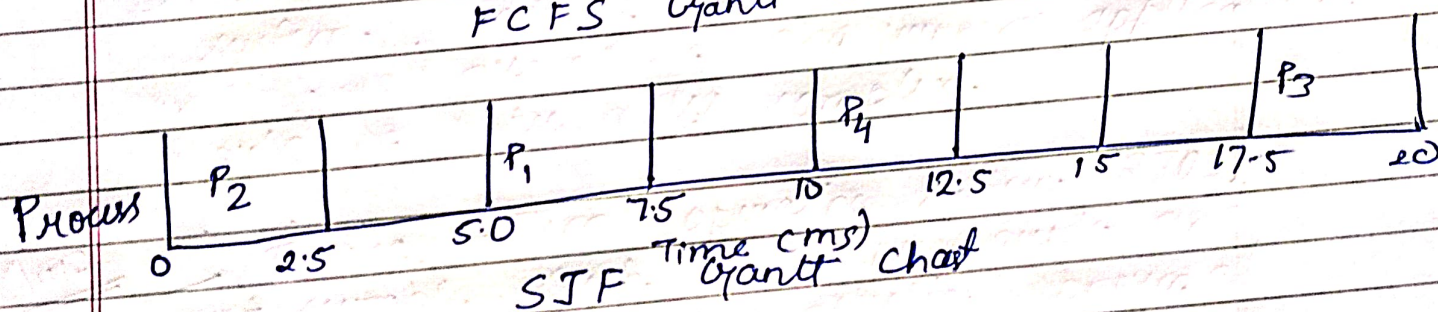 FCFS Gantt
Process P2 P1 P4 P3
0 2.5 5.0 7.5 10 12.5 15 17-5 20
Time (ms)
SJF Gantt Chart